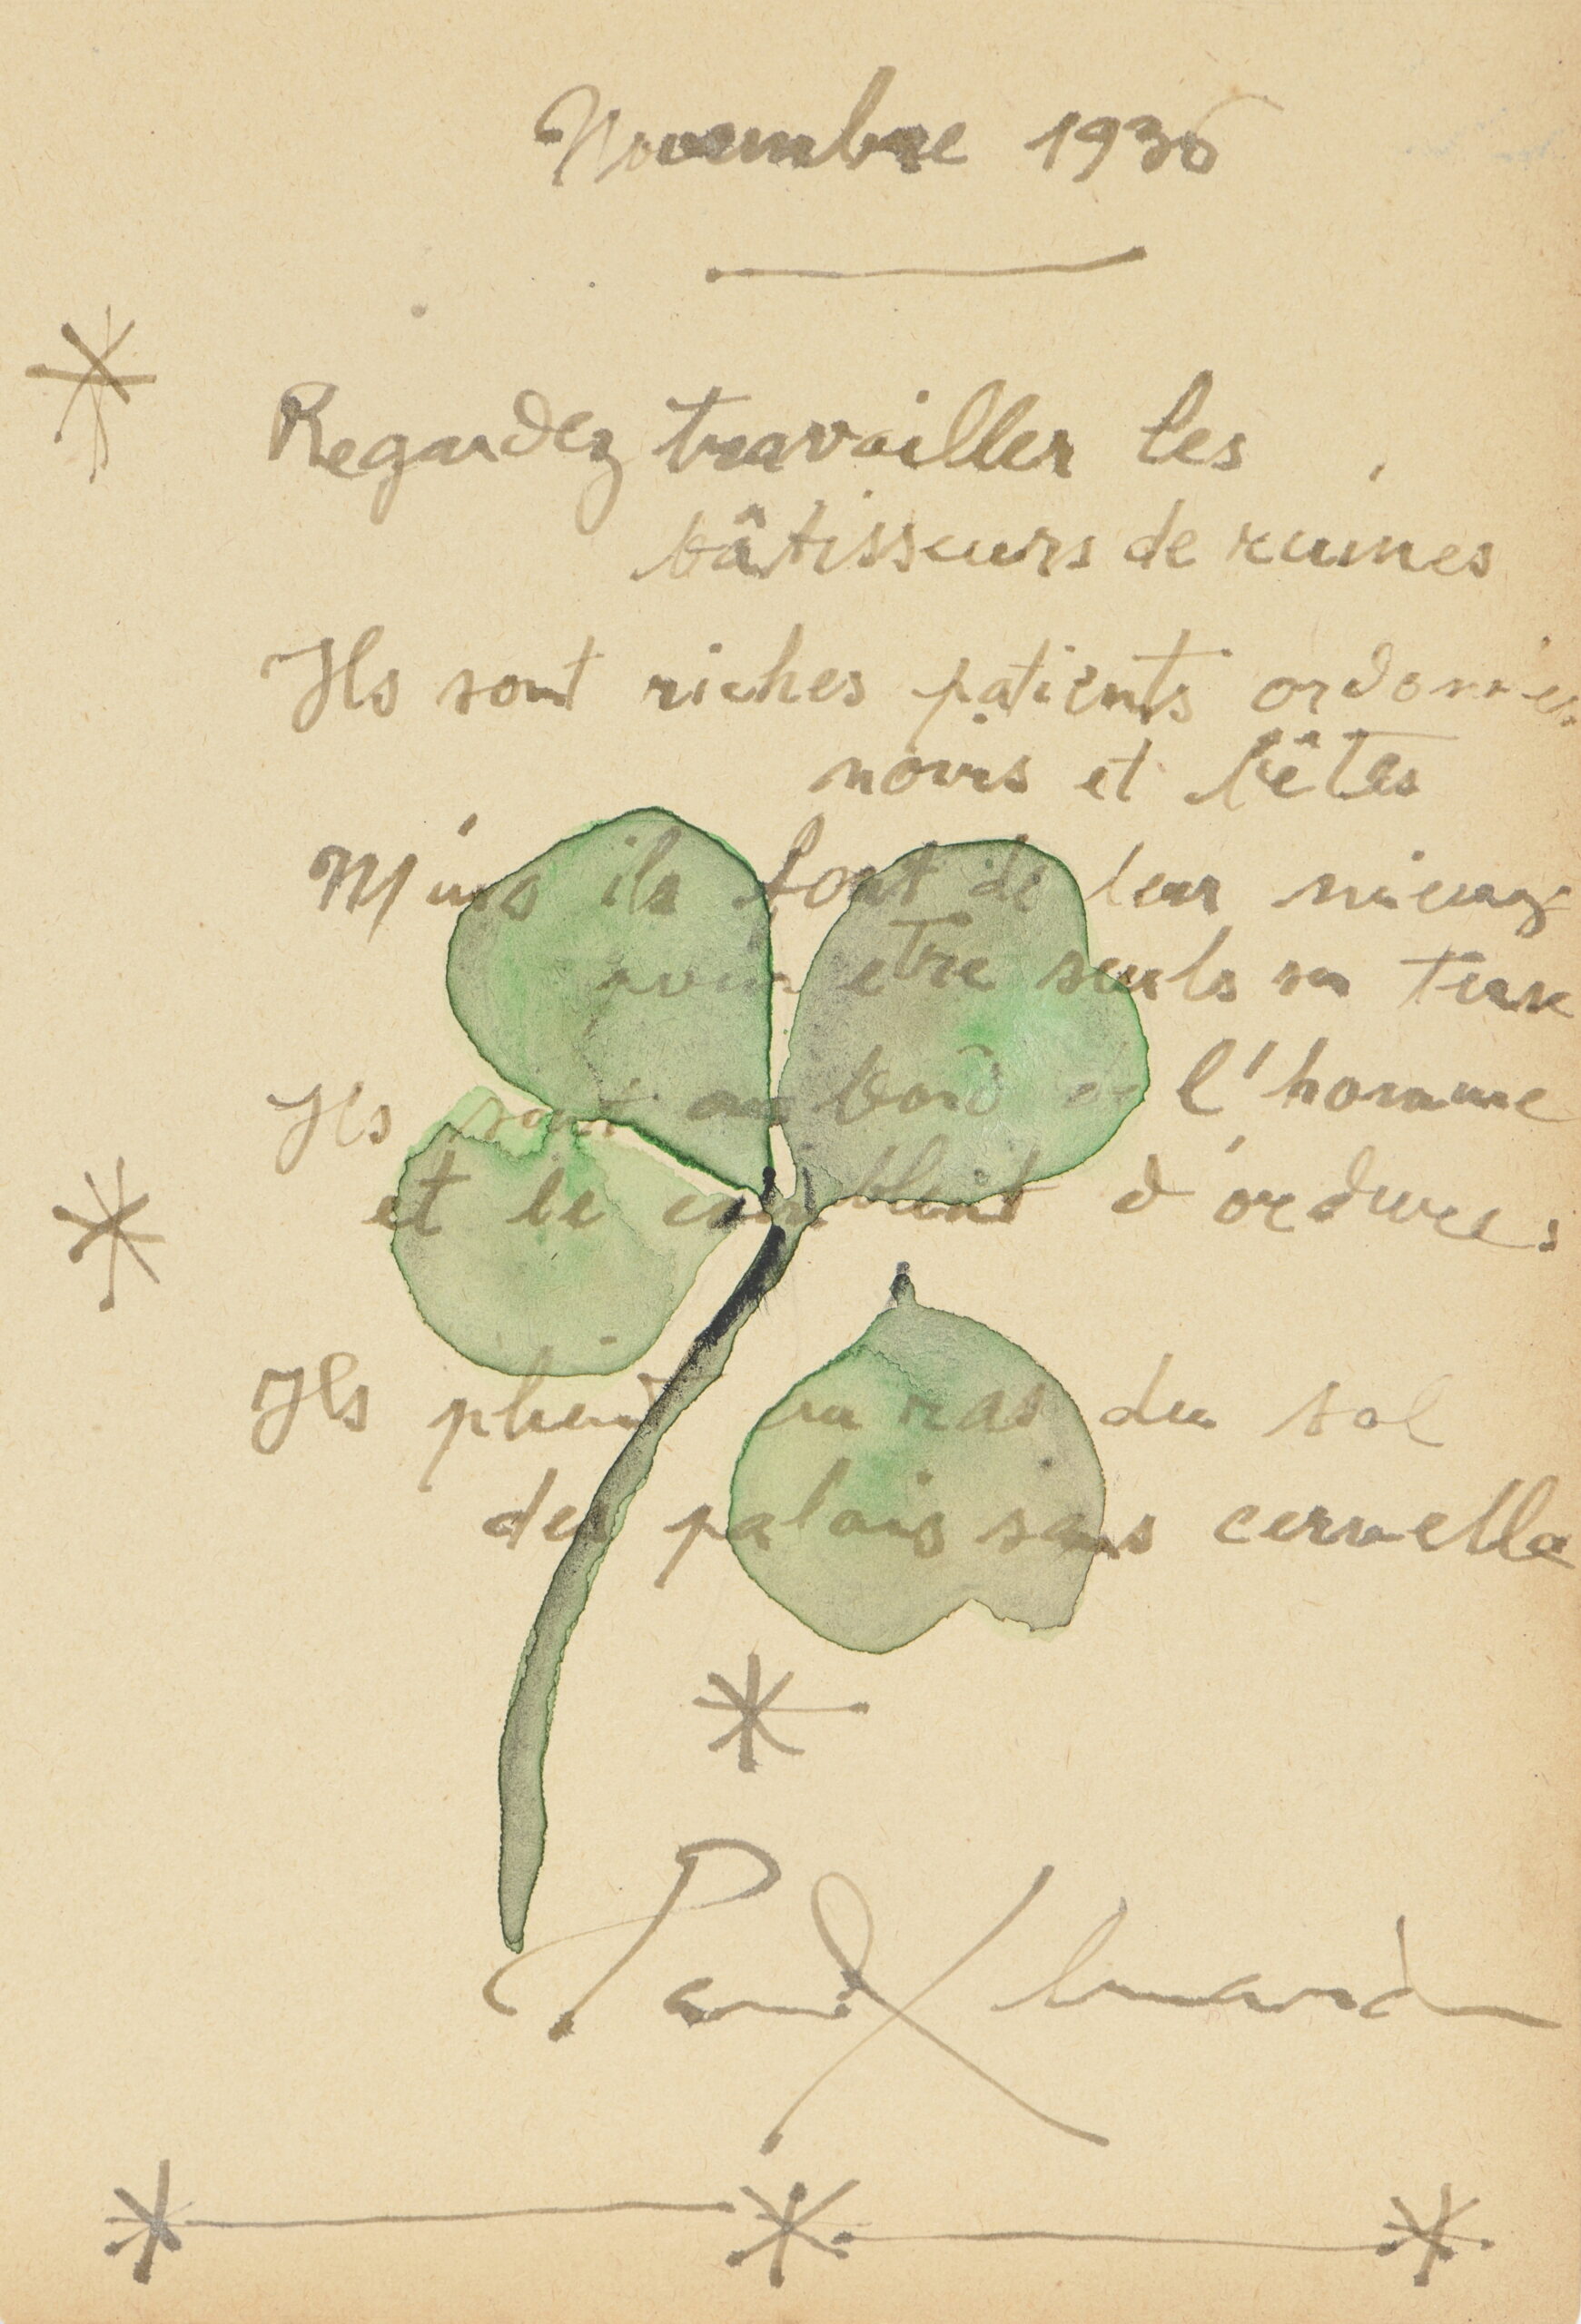 Novembre 1936
Regardez travailler les
bâtisseurs de ruines
Ils sont riches patients ordonnés
noirs et bêtes
Mais ils font de leur mieux
pour être seuls sur terre
Ils sont au bord de l'homme
et le comblent d'ordures
Ils plient au ras du sol
des palais sans cervelle
Paul Eluard